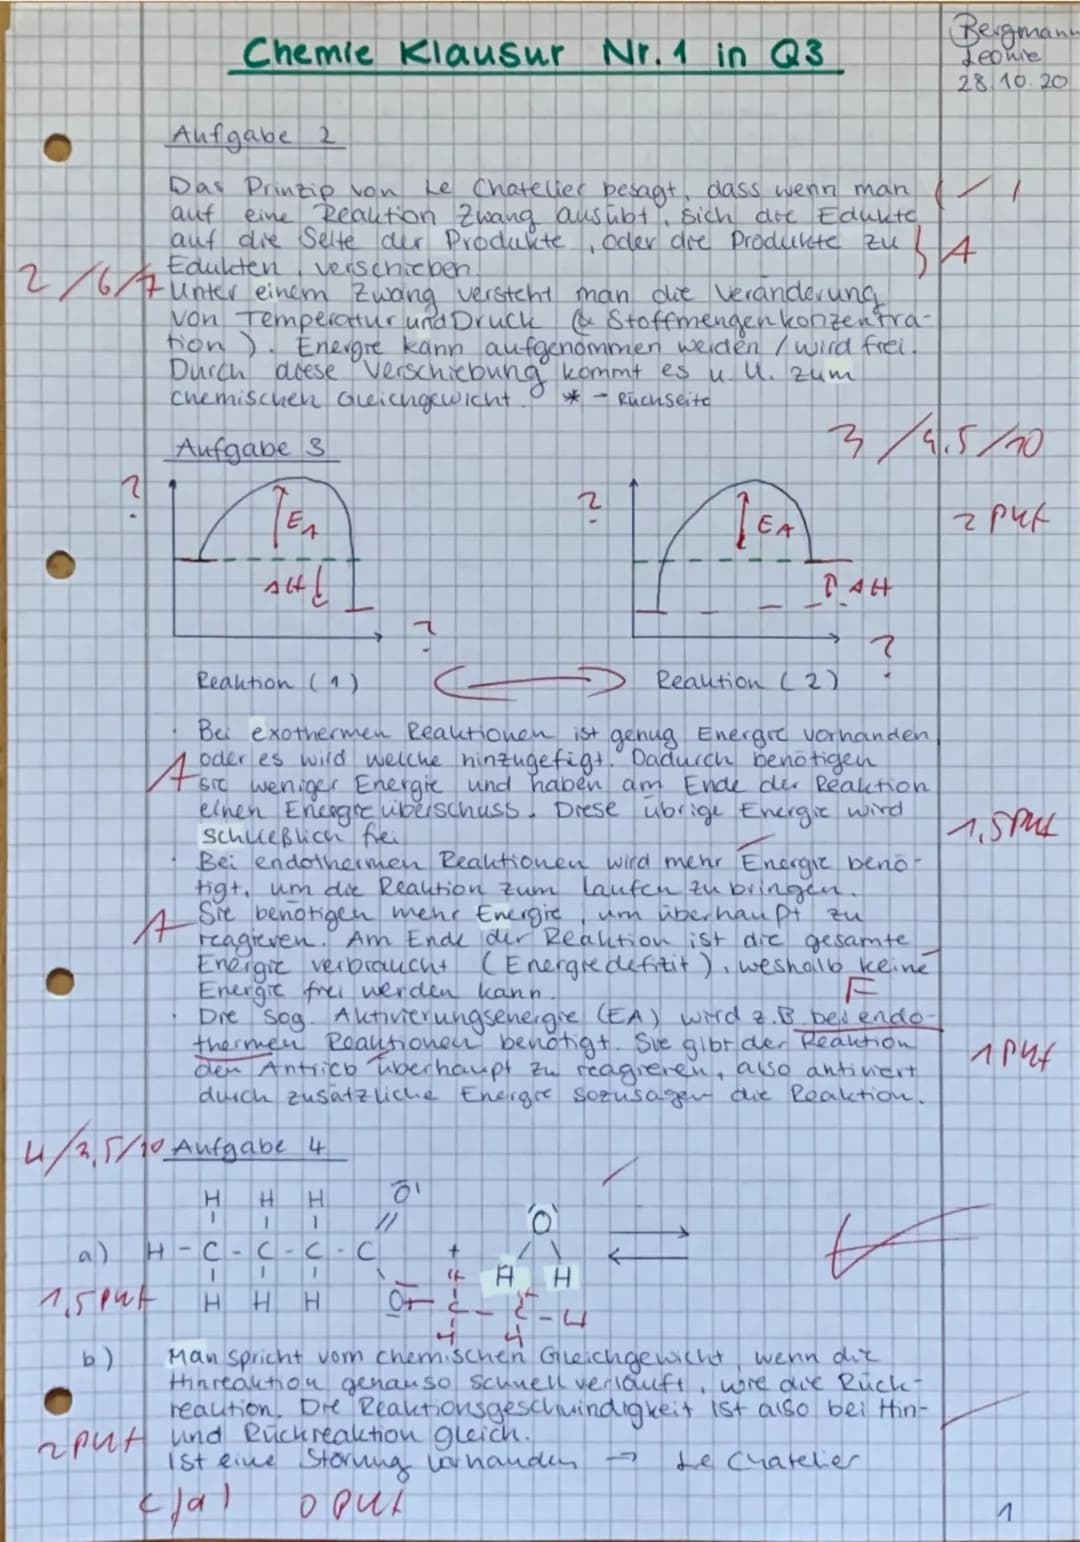 Chemie Klausur Nr. 1 in Q3
Bergmann
Leonie
28.10.20
Aufgabe 2
Das Prinzip von Le Chatelier besagt, dass wenn man
auf eine Reaktion Zwang ausübt, sich die Edukte
auf die Seite der Produkte, oder die Produkte zu
Edukten, verschieben.
Unter einem Zwang versteht man die Veränderung
von Temperatur und Druck (& Stoffmengenkonzentra-
tion). Energie kann aufgenommen werden / wird frei.
Durch diese Verschiebung kommt es u. U. zum
chemischen Gleichgewicht. * - Rückseite
1
A
2/6/7
Aufgabe 3
3/9,5/10
? EA ΔH ?
? EA ΔH ?
2 Pkt
Reaktion (1) Reaktion (2)
· Bei exothermen Reaktionen ist genug Energie vorhanden
oder es wird welche hinzugefigt. Dadurch benötigen
sie weniger Energie und haben am Ende der Reaktion
einen Energieüberschuss. Diese übrige Energie wird
schließlich frei
A
1,5 Pkt
· Bei endothermen Reaktionen wird mehr Energie benö-
tigt, um die Reaktion zum laufen zu bringen.
Sie benötigen mehr Energie, um überhaupt zu
reagieren. Am Ende der Reaktion ist die gesamte
Energie verbraucht (Energiedefizit), weshalb keine
Energie frei werden kann.
A
F
· Die sog. Aktivierungsenergie (EA) wird z.B. bei endo-
thermen Reaktionen benötigt. Sie gibt der Reaktion
den Antrieb überhaupt zu reagieren, also aktiviert
durch zusätzliche Energie sozusagen die Reaktion.
1 Pkt
Aufgabe 4
H H H O
a) H - C - C - C - C + O
H H
H H H O - C - C - H
H H
1,5 Pkt
b) Man spricht vom chemischen Gleichgewicht, wenn die
Hinreaktion genauso schnell verläuft, wie die Rück-
reaktion. Die Reaktionsgeschwindigkeit ist also bei Hin-
und Rückreaktion gleich.
Ist eine Störung vorhanden → Le Chatelier
2 Pkt
c/d) 0 Pkt
1